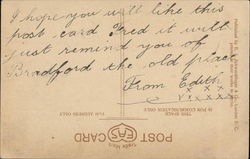 I hope you will like this
post card Fred it will
just remind you of
Bradford the old place
From Edith
x x x x
x x x x x
THIS SPACE
IS FOR COMMUNICATION ONLY
FOR ADDRESS ONLY
POST CARD
FAS
Trade Mark